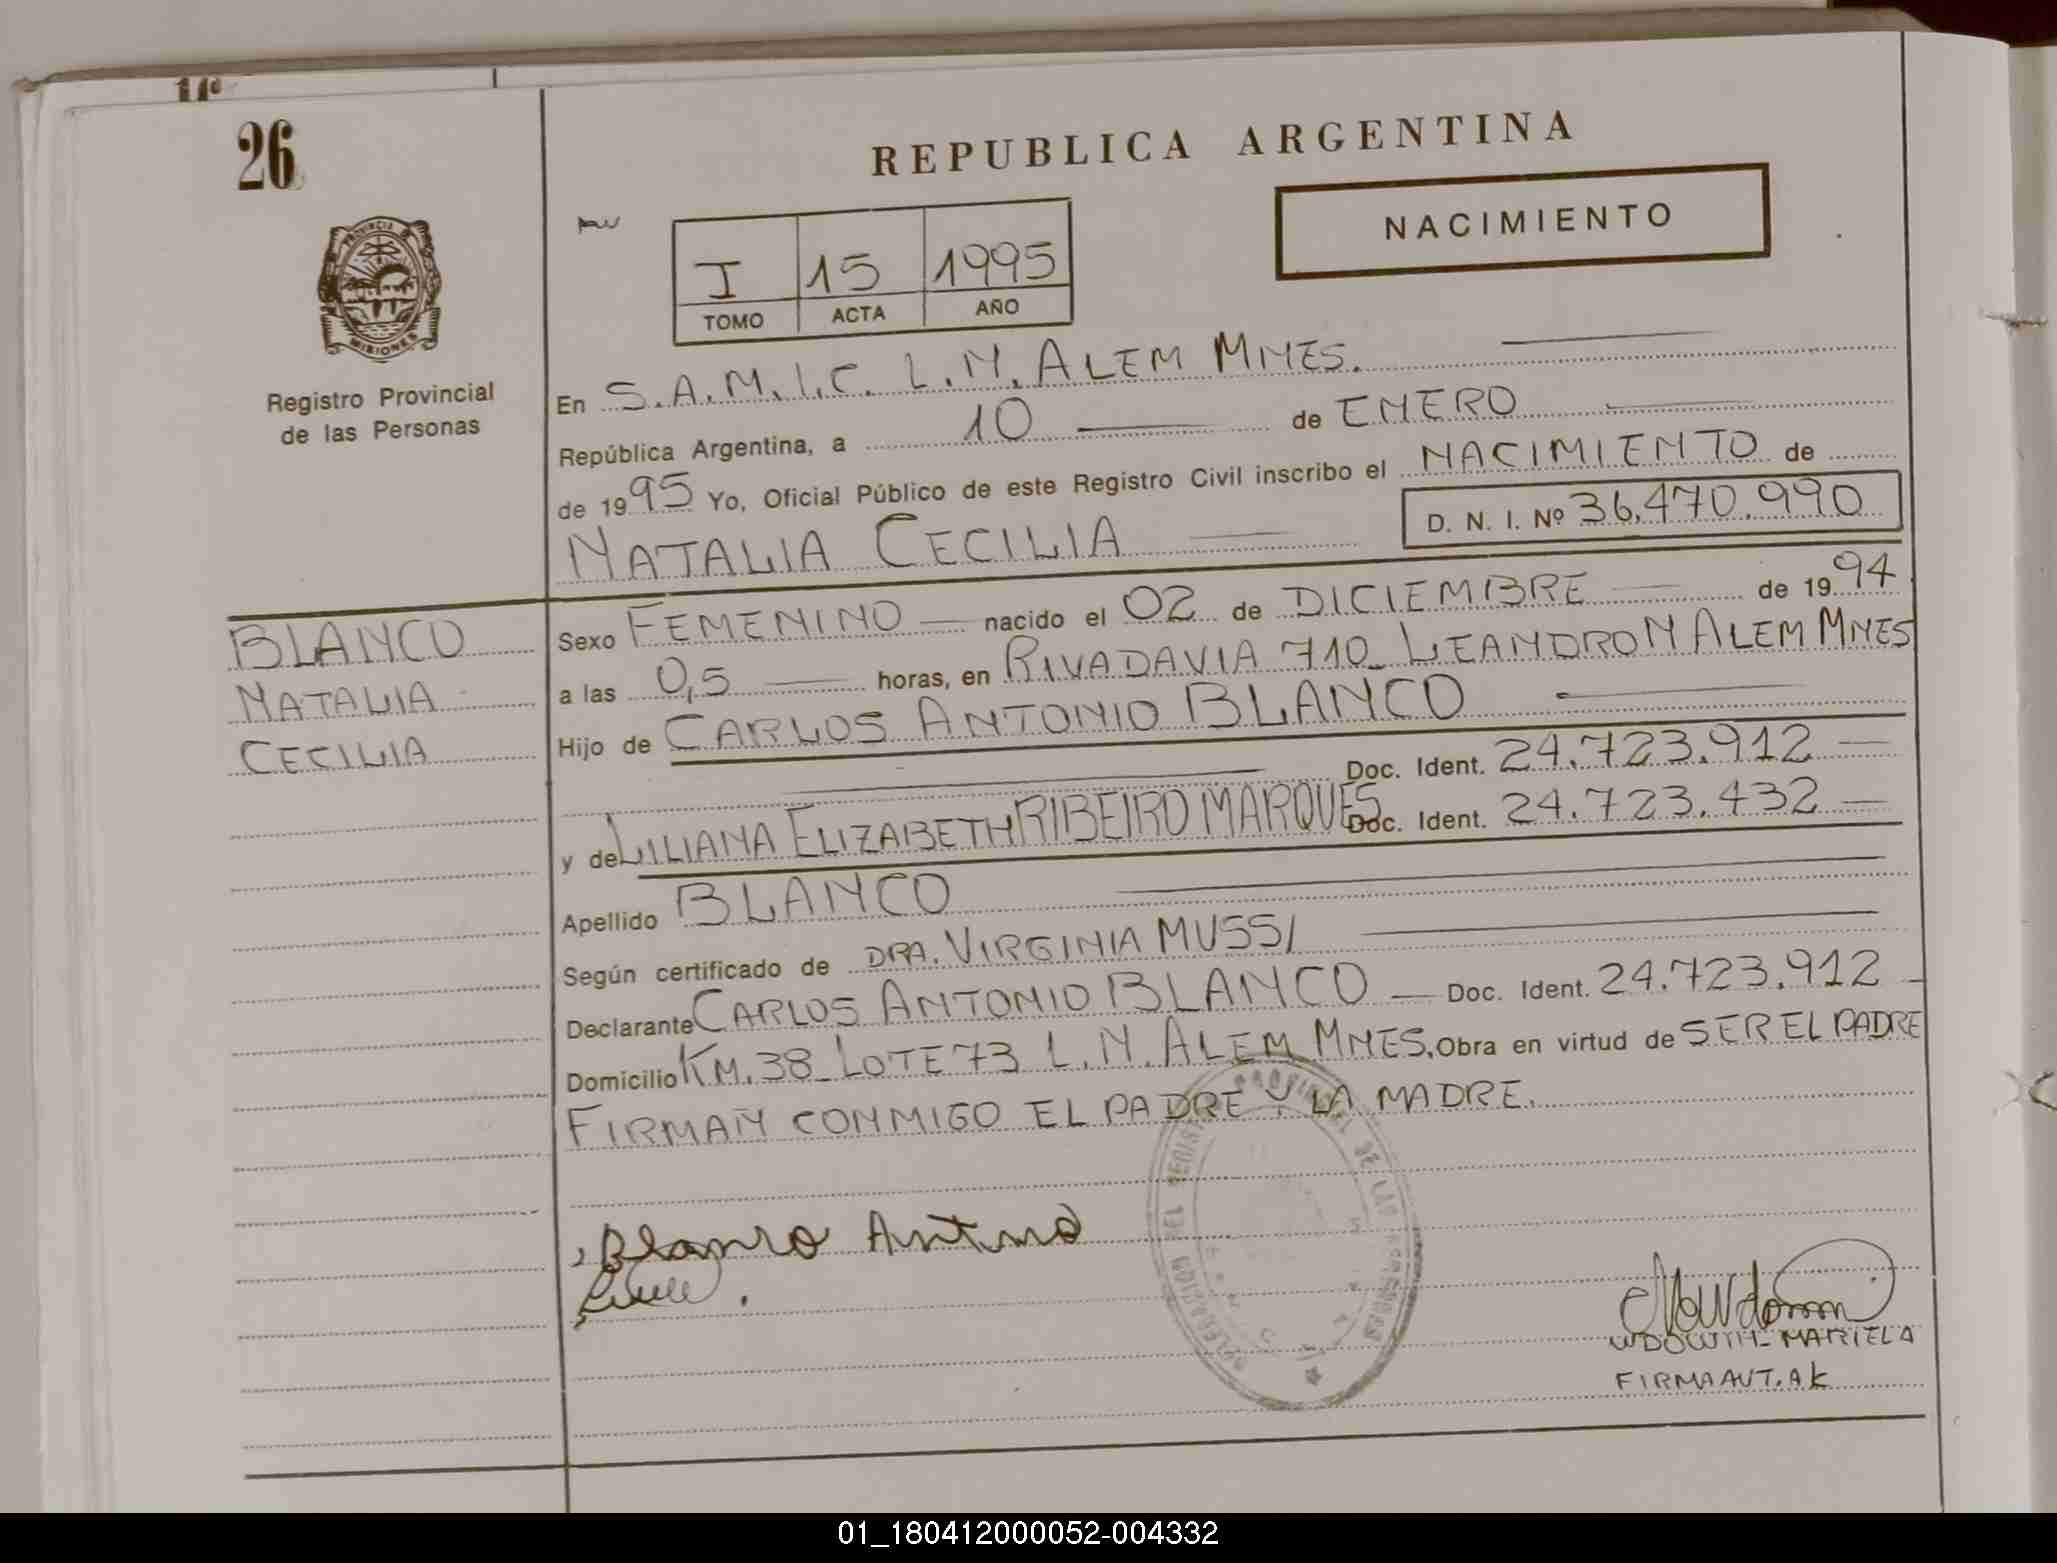 26
REPUBLICA ARGENTINA
NACIMIENTO
I 15 1995
TOMO ACTA AÑO
PROVINCIA DE MISIONES
Registro Provincial
de las Personas
En S.A.M.I.C. L.N. ALEM MNES.
República Argentina, a 10 de ENERO
de 1995 Yo, Oficial Público de este Registro Civil inscribo el NACIMIENTO de
NATALIA CECILIA D. N. I. Nº 36.470.990
BLANCO
NATALIA
CECILIA
Sexo FEMENINO nacido el 02 de DICIEMBRE de 1994
a las 0,5 horas, en RIVADAVIA 710_ LEANDRO N ALEM MNES
Hijo de CARLOS ANTONIO BLANCO
Doc. Ident. 24.723.912
y de LILIANA ELIZABETH RIBEIRO MARQUES Doc. Ident. 24.723.432
Apellido BLANCO
Según certificado de DRA. VIRGINIA MUSSI
Declarante CARLOS ANTONIO BLANCO Doc. Ident. 24.723.912
Domicilio KM. 38_ LOTE 73 L.N. ALEM MNES. Obra en virtud de SER EL PADRE
FIRMAN CONMIGO EL PADRE Y LA MADRE.
DELEGACION DEL REGISTRO PROVINCIAL DE LAS PERSONAS
Blanco Antonio
MARIELA
FIRMA AUT.
01_180412000052-004332